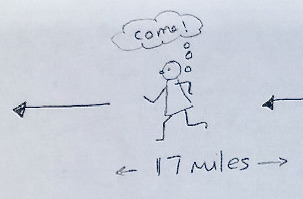 come!
17 miles